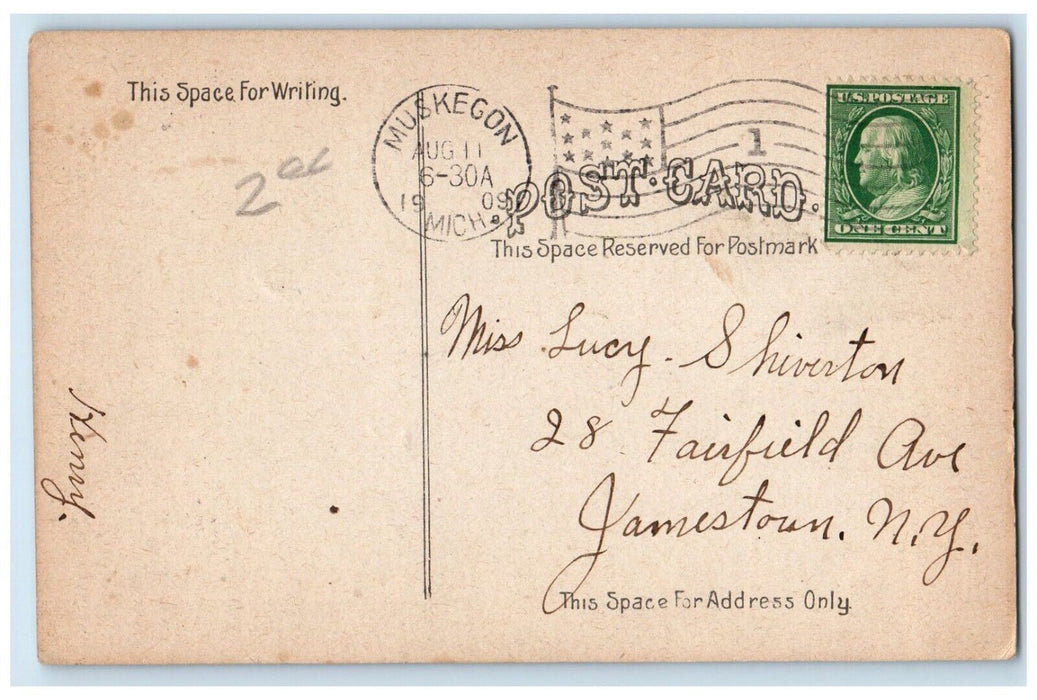 This Space For Writing.
2
MUSKEGON
AUG 11
6-30A
1909
MICH.
1
U.S. POSTAGE
ONE CENT
POST CARD.
This Space Reserved For Postmark
Miss Lucy Shiverton
28 Fairfield Ave
Jamestown. N.Y.
This Space For Address Only.